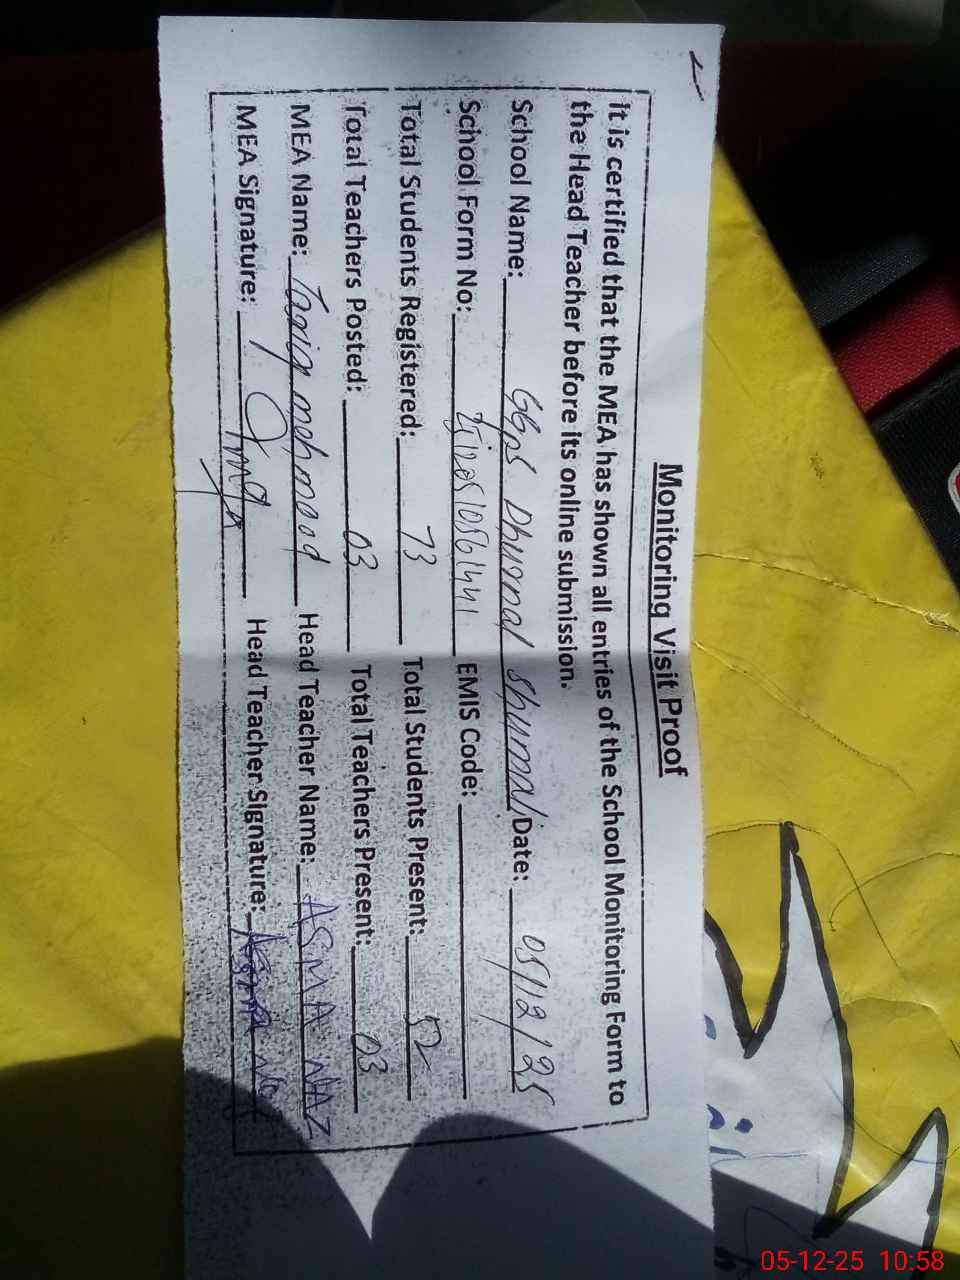 Monitoring Visit Proof
It is certified that the MEA has shown all entries of the School Monitoring Form to
the Head Teacher before its online submission.
School Name: GGPS Dhurnal Shumali Date: 05/12/25
School Form No: EMIS Code:
Total Students Registered: 73 Total Students Present: 52
Total Teachers Posted: 03 Total Teachers Present: 03
MEA Name: Tariq mehmood Head Teacher Name: ASMA NAZ
MEA Signature: Head Teacher Signature: Asma Naz
05-12-25 10:58